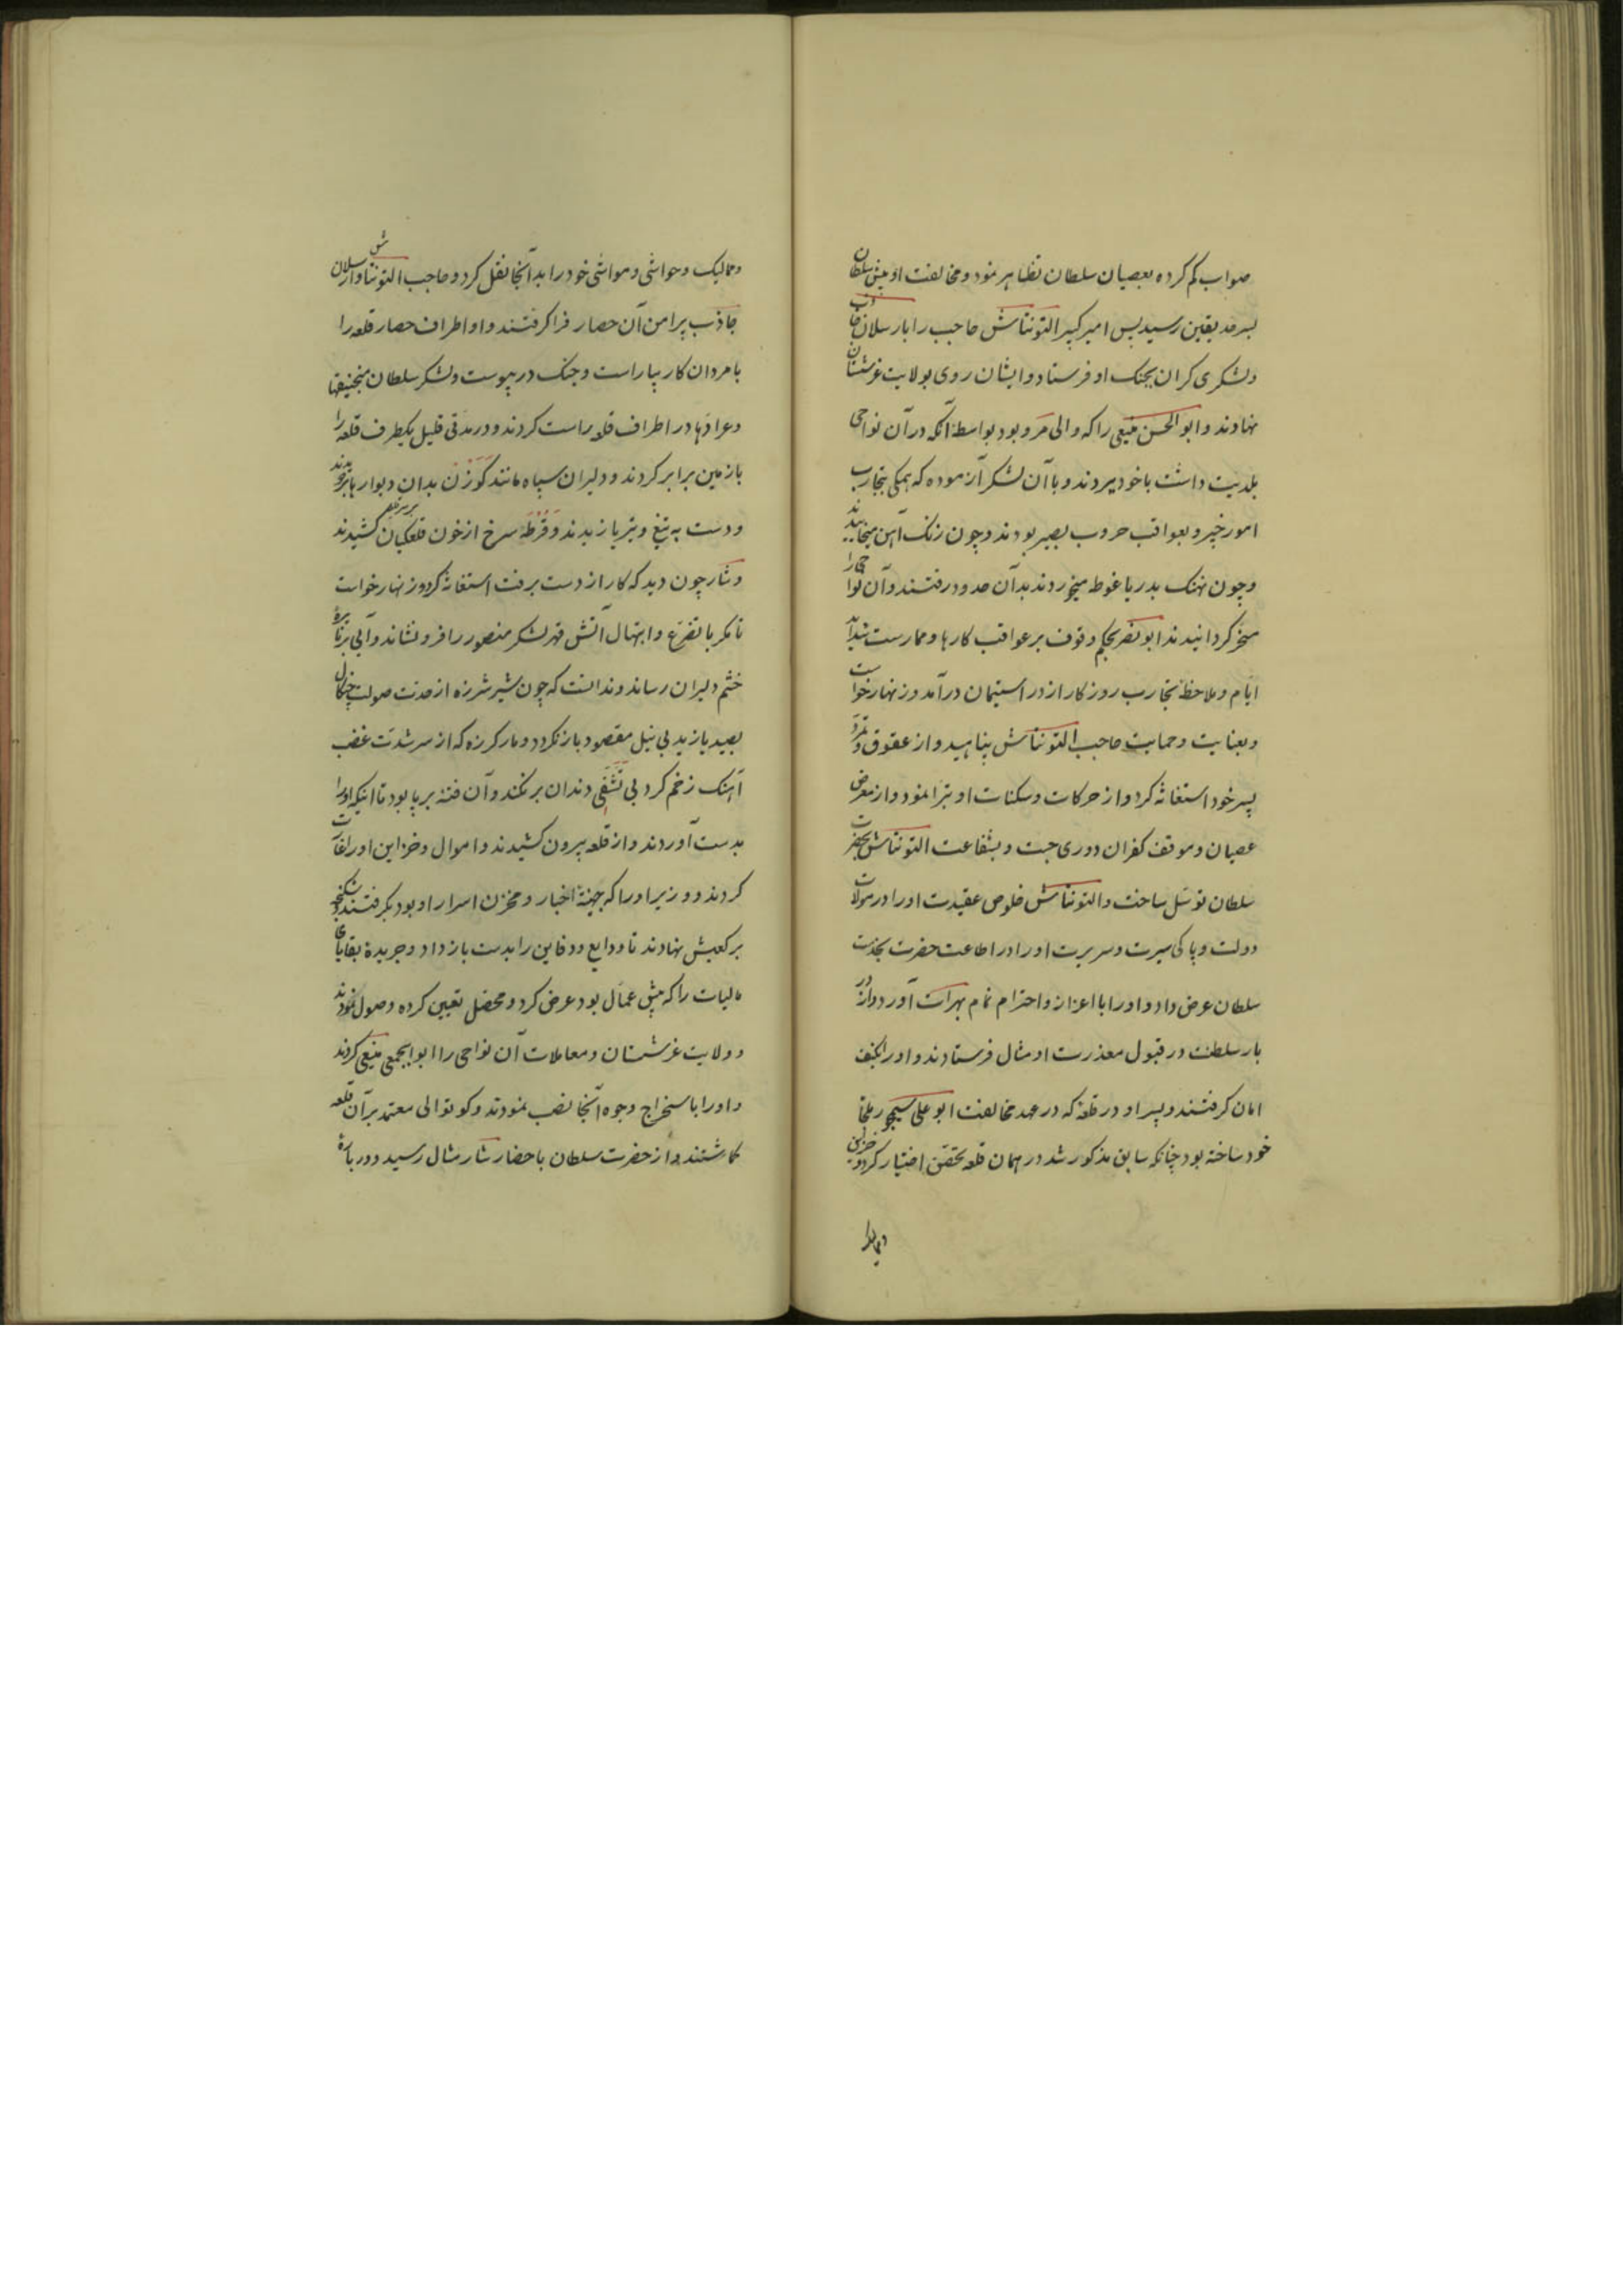 صواب گم کرده بعصیان سلطان تظاهر نمود و مخالفت او پیش سلطان
بسرحد یقین رسید پس امیر کبیر التونتاش حاجب را با ارسلان جاذب
و لشکری کران بجنک او فرستاد و ایشان روی بولایت غرشستان
نهادند و ابو الحسن منیعی را که والی مرو بود بواسطهٔ آنکه در آن نواحی
بلدیت داشت با خود ببردند و با آن لشکر آزموده که همگی بتجارب
امور خبیر و بعواقب حروب بصیر بودند و چون زنک آهن میخاییدند
و چون نهنک بدریا غوطه میخوردند بدآن حدود رفتند و آن نواحی را
مسخر کردانیدند ابو نصر بحکم وقوف بر عواقب کارها و ممارست شداید
ایام و ملاحظهٔ تجارب روزکار از در استیمان درآمد و زنهار خواست
و بعنایت و حمایت حاجب التونتاش پناهید و از عقوق و تمرد
پسر خود استغاثه کرد و از حرکات و سکنات او تبرا نمود و از معرض
عصیان و موقف کفران دوری جست و بشفاعت التونتاش بحضرت
سلطان توسل ساخت و التونتاش خلوص عقیدت او را در موالات
دولت و پاکی سیرت و سریرت او را در اطاعت حضرت بخدمت
سلطان عرض داد و او را با اعزاز و احترام تمام بهرات آورد و از در
بار سلطنت در قبول معذرت او مثال فرستادند و او را بکنف
امان کرفتند و پسر او در قلعهٔ که در عهد مخالفت ابو علی سیمجور ملجا
خود ساخته بود چنانکه سابق مذکور شد در همان قلعه تحصن اختیار کرد و خزاین
و ممالیک و حواشی و مواشی خود را بدآنجا نقل کرد و حاجب التونتاش و ارسلان
جاذب پیرامن آن حصار فرا کرفتند و او اطراف حصار قلعه را
با مردان کار بیاراست و جنک در پیوست و لشکر سلطان منجنیقها
و عرادها در اطراف قلعه راست کردند و در مدتی قلیل یکطرف قلعه را
با زمین برابر کردند و دلیران سپاه مانند کوزن بدان دیوارها بردویدند
و دست به تیغ و تیر یازیدند و قرطهٔ سرخ از خون قلعکیان کشیدند
و شار چون دید که کار از دست برفت استغاثه کرد و زنهار خواست
تا مکر با تضرع و ابتهال آتش قهر لشکر منصور را فرو نشاند و آبی بر نایرهٔ
خشم دلیران رساند و ندانست که چون شیر شرزه از حدت صولت چنکال
بصید یازید بی نیل مقصود باز نکردد و مار کرزه که از سر شدت غضب
آهنک زخم کرد بی تشفی دندان بر نکند و آن فتنه برپا بود تا اینکه او را
بدست آوردند و از قلعه بیرون کشیدند و اموال و خزاین او را غارت
کردند و وزیر او را که جهینهٔ اخبار و مخزن اسرار او بود بکرفتند و شکنجه
بر کعبش نهادند تا ودایع و دفاین را بدست باز داد و جریدهٔ بقایای
مالیات را که پیش عمال بود عرض کرد و محصل تعیین کرده وصول نمودند
و ولایت غرشستان و معاملات آن نواحی را منیعی کردند
و او را باستخراج وجوه آنجا نصب نمودند و کوتوالی معتمد بر آن قلعه
کماشتند و از حضرت سلطان باحضار شار مثال رسید و در بارهٔ